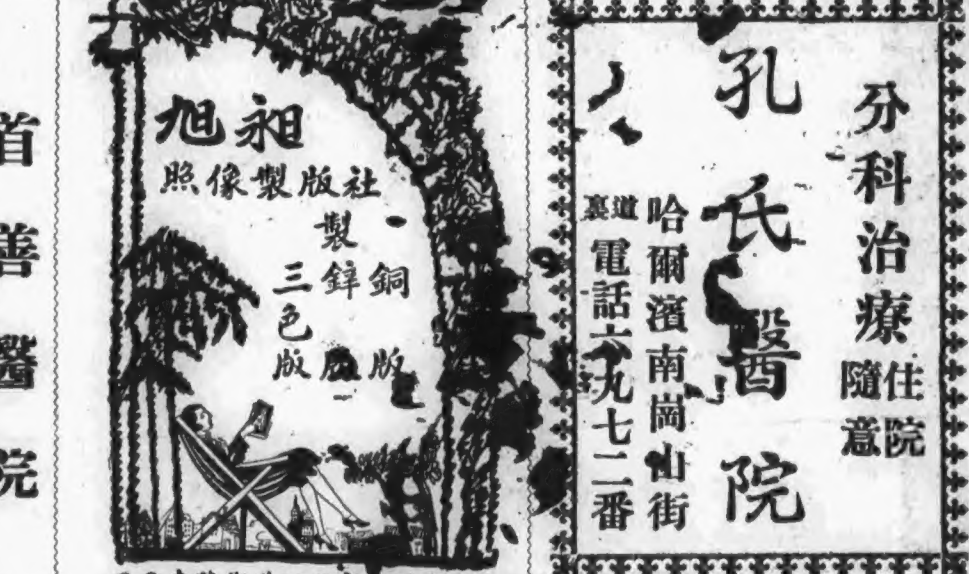 分科治療
住院
隨意
孔氏醫院
哈爾濱南崗山街
道裏
電話六九七二番
旭昶
照像製版社
製
銅版
鋅版
三色版
首善醫院